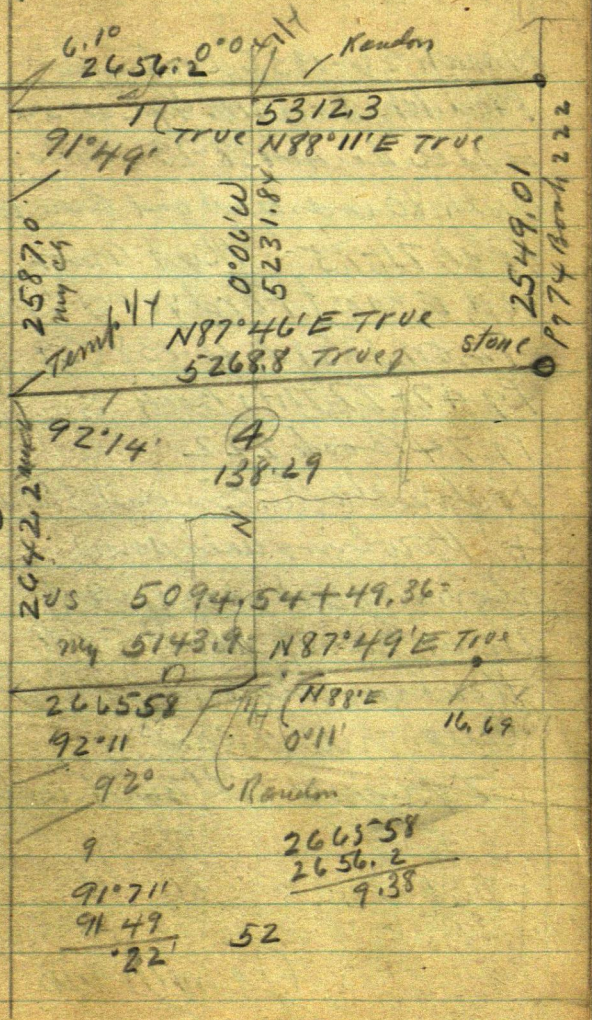 6.10
2656.2 0°04' 1/4 Random
5312.3
91°49' True N88°11'E True
2587.0
my ch
N 0°06'W
5231.84
2549.01
Pg 74 Book 222
Temp 1/4 N87°46'E True
5268.8 True stone
92°14'
4
138.29
2642.2
US 5094.54 + 49.36
my 5143.9 N87°49'E True
2665.58 1/4 N88°E
92°11' 0°11' 16.69
92° Random
9 2665.58
2656.2
9.38
91°71'
91 49
°22' 52